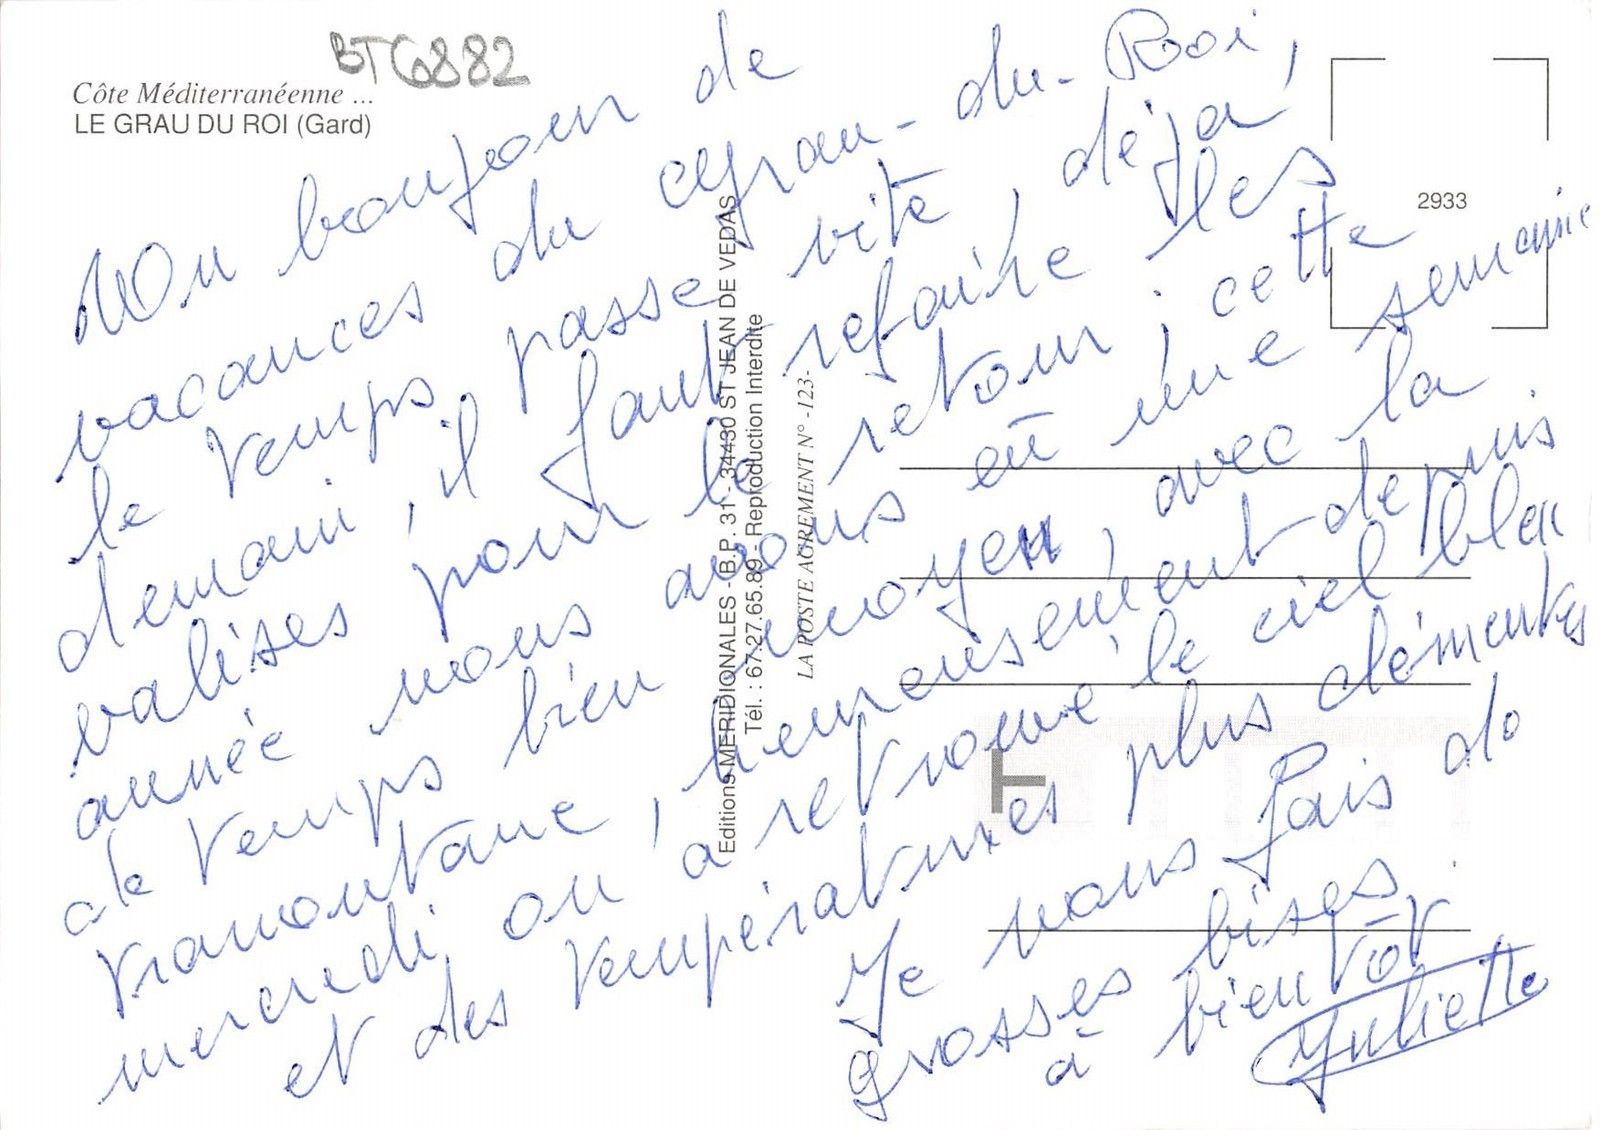 BTG882
Côte Méditerranéenne ...
LE GRAU DU ROI (Gard)
2933
Editions MERIDIONALES - B.P. 31 - 34430 ST JEAN DE VEDAS
Tél. : 67.27.65.89 - Reproduction Interdite
LA POSTE AGREMENT N° -123-
T
Mon bonjour de
vacances du Grau-du-Rooi,
le temps passe vite déjà,
demain, il faut refaire les
valises pour le retour; cette
année nous avons eu une semaine
de temps bien moyen, avec la
tramontane, heureusement depuis
mercredi on a retrouvé le ciel bleu
et des températures plus clémentes
Je vous fais de
grosses bises.
à bientôt
Juliette